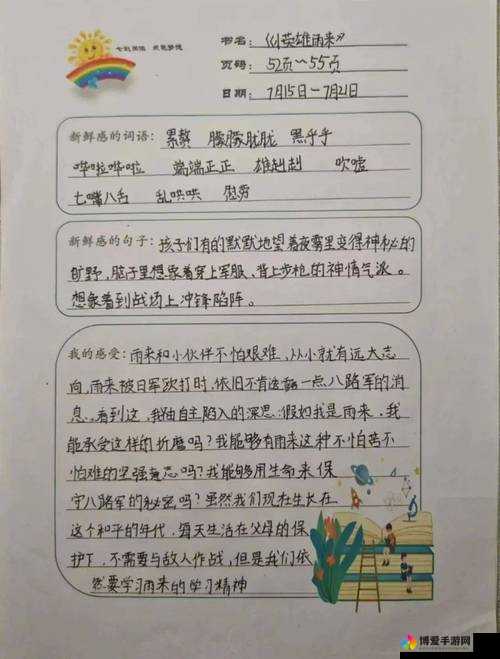 书名：《小英雄雨来》
页码：52页～55页
日期：7月15日—7月21日
新鲜感的词语：累赘 朦朦胧胧 黑乎乎
哗啦哗啦 端端正正 雄赳赳 吹嘘
七嘴八舌 乱哄哄 慰劳
新鲜感的句子：孩子们有的默默地望着夜雾里变得神秘的
旷野，脑子里想象着穿上军服、背上步枪的神情气派。
想象着到战场上冲锋陷阵。
我的感受：雨来和小伙伴不怕艰难，从小就有远大志
向，雨来被日军欧打时，依旧不肯透漏一点八路军的消
息。看到这，我独自主陷入的深思：假如我是雨来，我
能承受这样的折磨吗？我能够有雨来这种不怕苦不
怕难的坚强意志吗？我能够用生命来保
守八路军的秘密吗？虽然我们现在生长在
这个和平的年代，每天生活在父母的保
护下，不需要与敌人作战，但是我们依
然要学习雨来的学习精神
博爱手游网